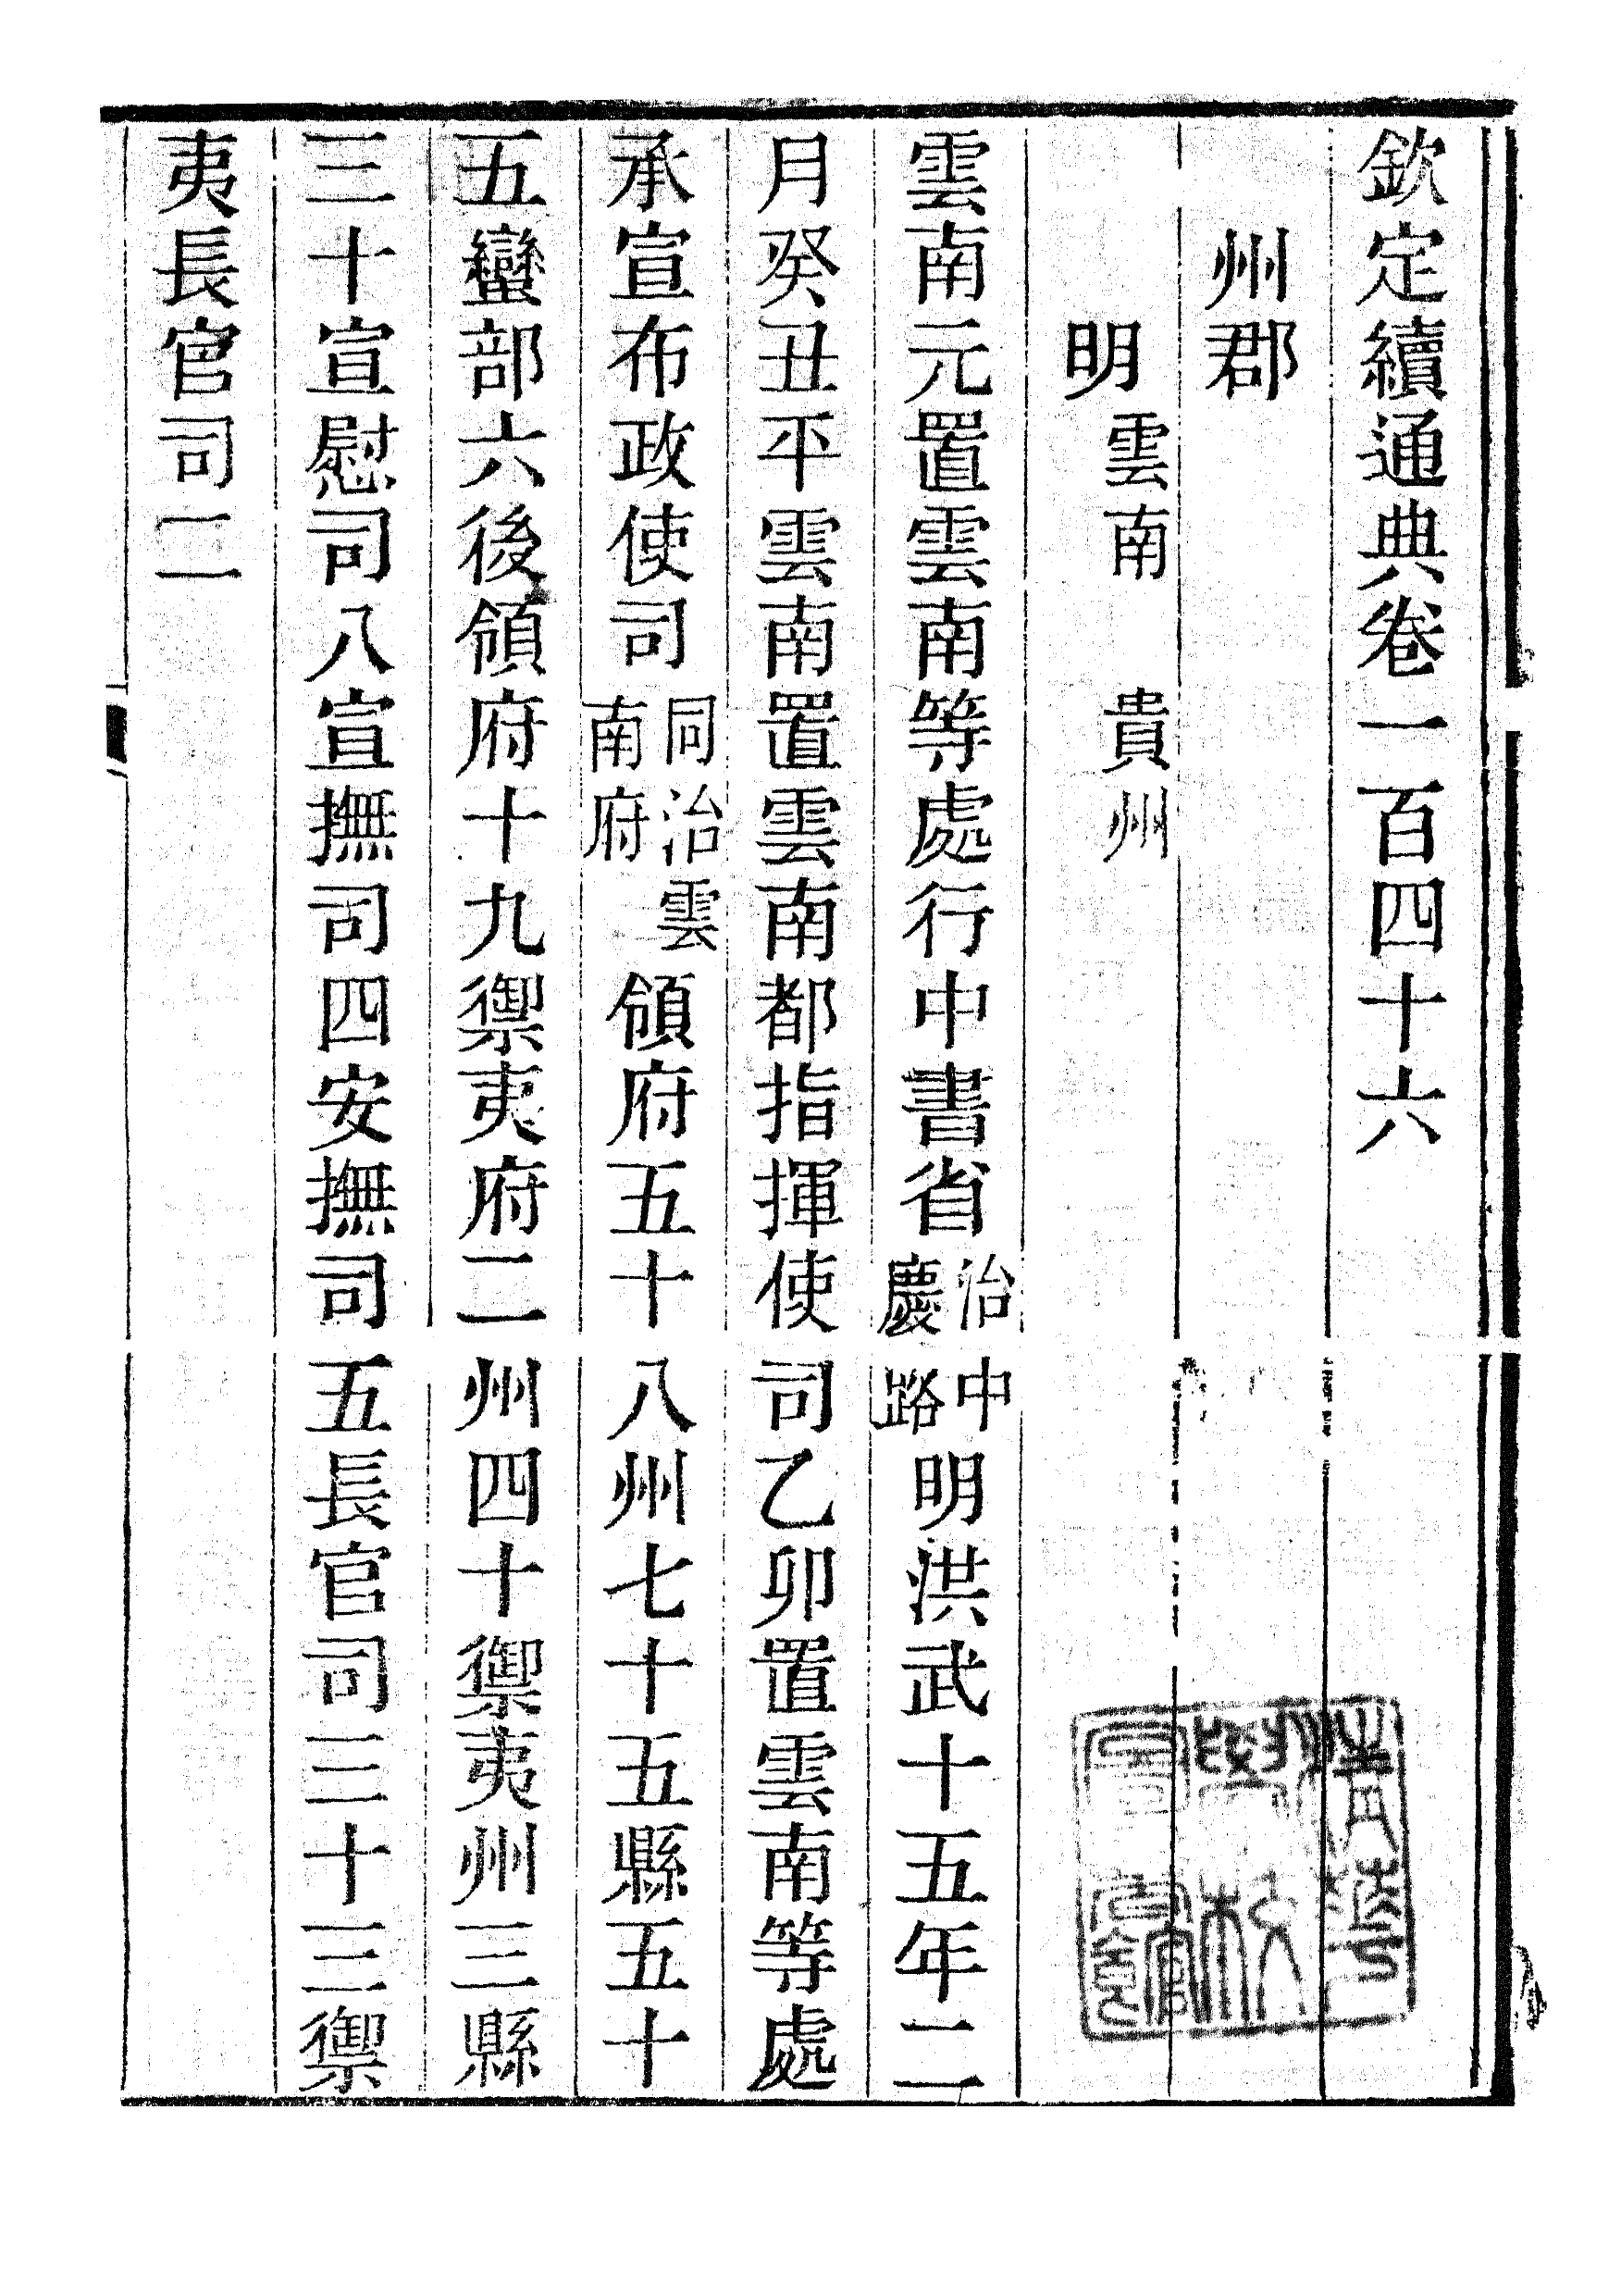 欽定續通典卷一百四十六
州郡
明雲南 貴州
雲南元置雲南等處行中書省治中慶路明洪武十五年二
月癸丑平雲南置雲南都指揮使司乙卯置雲南等處
承宣布政使司同治雲南府領府五十八州七十五縣五十
五蠻部六後領府十九禦夷府二州四十禦夷州三縣
三十宣慰司八宣撫司四安撫司五長官司三十三禦
夷長官司二